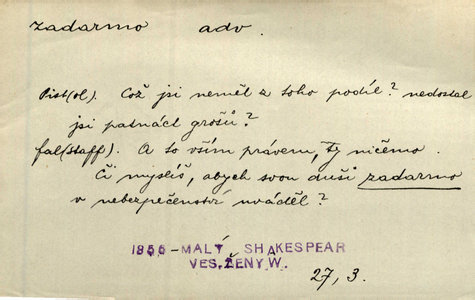 zadarmo adv.
Pist(ol). Což jsi neměl z toho podíl? nedostal
jsi patnáct grošů?
fal(staff). A to vším právem, ty ničemo.
Či myslíš, abych svou duši zadarmo
v nebezpečenství uváděl?
1866-MALÝ, SHAKESPEAR
VES.ŽENY,W.
27, 3.